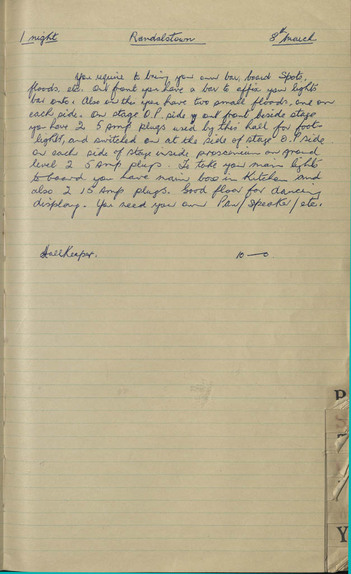 1 night Randalstown 8th March
You require to bring your own bar, board spots,
floods, etc. Out front you have a bar to affix your lights
bar onto. Also on this you have two small floods, one on
each side. On stage O.P. side y out front beside stage
you have 2 5 amp plugs used by this hall for foot-
lights, and switched on at the side of stage O.P. side
on each side of stage inside proscenium on ground
level 2 5 amp plugs. To take your main lights
to board you have main box in Kitchen and
also 2 15 amp plugs. Good floor for dancing
display. You need your own Pan/Speaker/etc.
Hall Keeper. 10—0
P
Y